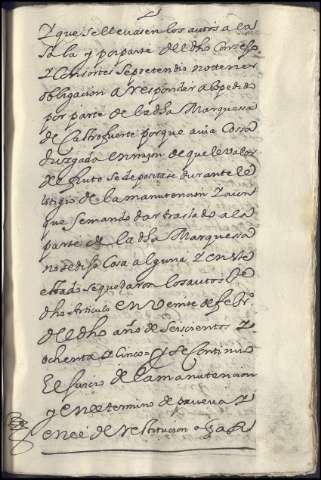 Y que se llevasen los autos a la
sala y por parte del dho Conzejo
Y Consortes se pretendio no tener
obligacion a Responder a lo pedido
por parte de la dha Marquesa
de Castrofuerte porque avia Cossa
Juzgada en
de que le valor
fruto se depositase durante el
litigio de la manutencion Y aun
que se mando dar traslado a la
parte de la dha Marquessa
no se dijo Cosa alguna Y en este
estado se quedaron los autos
dho Articulo en Veinte de
del dho año de Seiscientos Y
ochenta Y Cinco Y se Continuo
El Juicio de la manutencion
y en el termino de prueva Y
en el de Restitucion